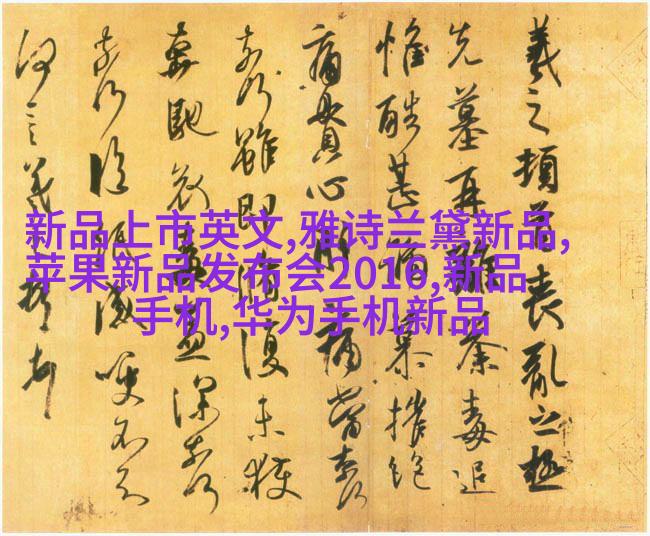 新品上市英文,雅诗兰黛新品,
苹果新品发布会2016,新品
手机,华为手机新品
羲之頓首喪亂之極
先墓再離荼毒追
惟酷甚號慕摧絕
痛貫心肝痛當奈何
奈何雖即脩復未獲
奔馳哀毒益深奈何
奈何臨紙感哽不知
何言羲之頓首頓首